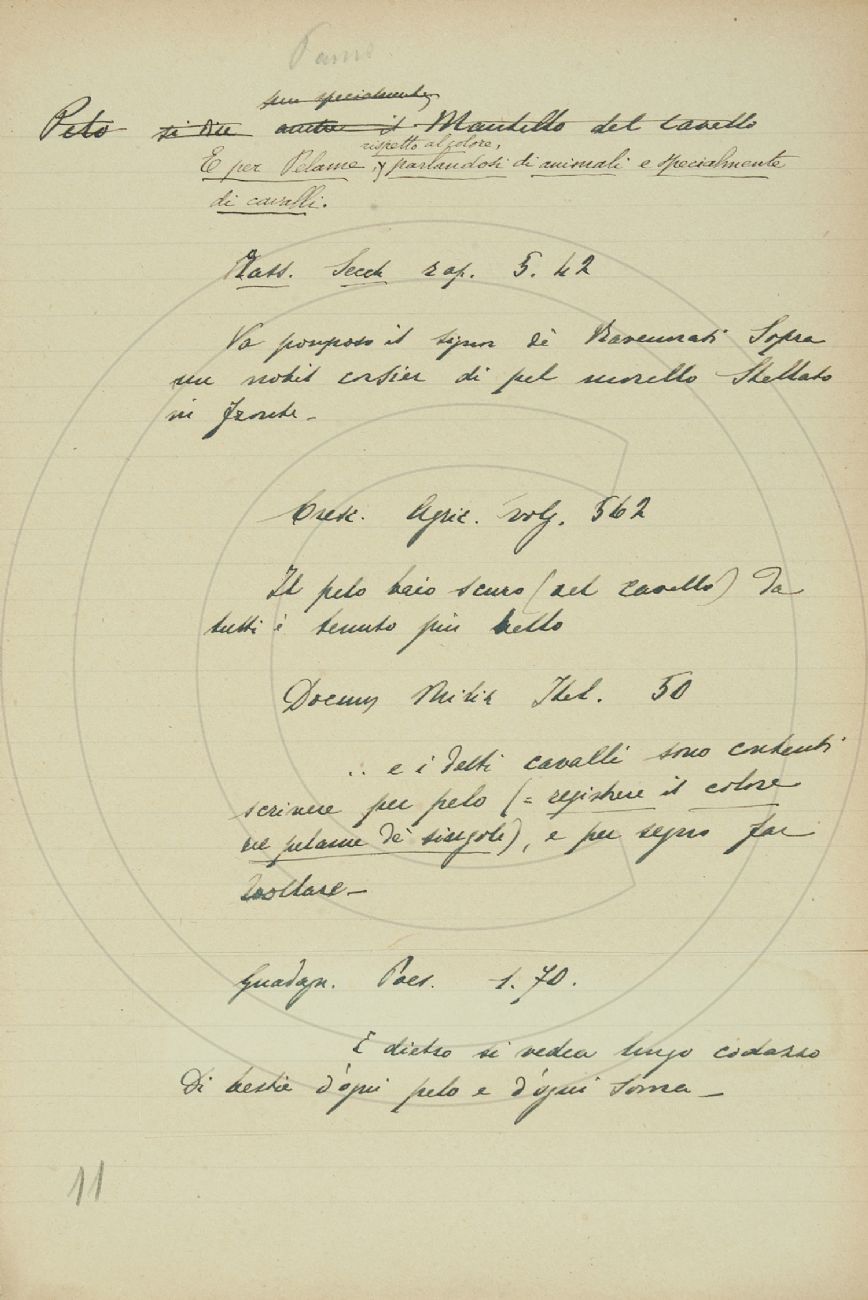 Pelo si dice anche il Mantello del cavallo
più specialmente
rispetto al colore,
E per Pelame, parlandosi di animali e specialmente
di cavalli.
Tass. Secch rap. 5. 42
Va pomposo il signor de' Ravennati Sopra
un nobil corsier di pel morello Stellato
in fronte_
Cresc. Agric. volg. 562
Il pelo baio scuro (del cavallo) da
tutti è tenuto più bello
Docum Miliz Ital. 50
.. e i detti cavalli sono contenti
scrivere per pelo (= registrere il colore
del pelame de' singoli), e per segno far
bollare_
Guadagn. Poes. 1. 70.
E dietro si vedea lungo codazzo
Di bestie d'ogni pelo e d'ogni soma_
11